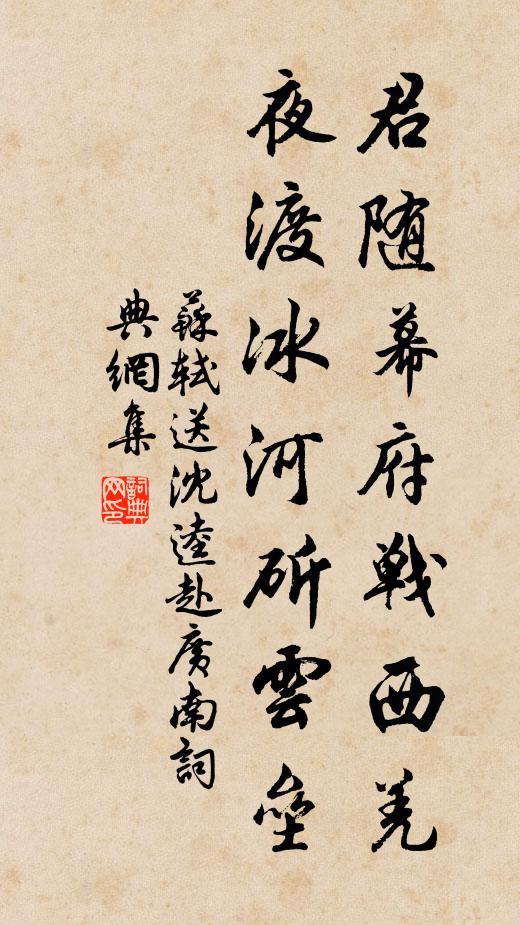 君随幕府戰西羌
夜渡冰河斫雲壘
蘇軾送沈逵赴廣南詞
典網集
詞典網印